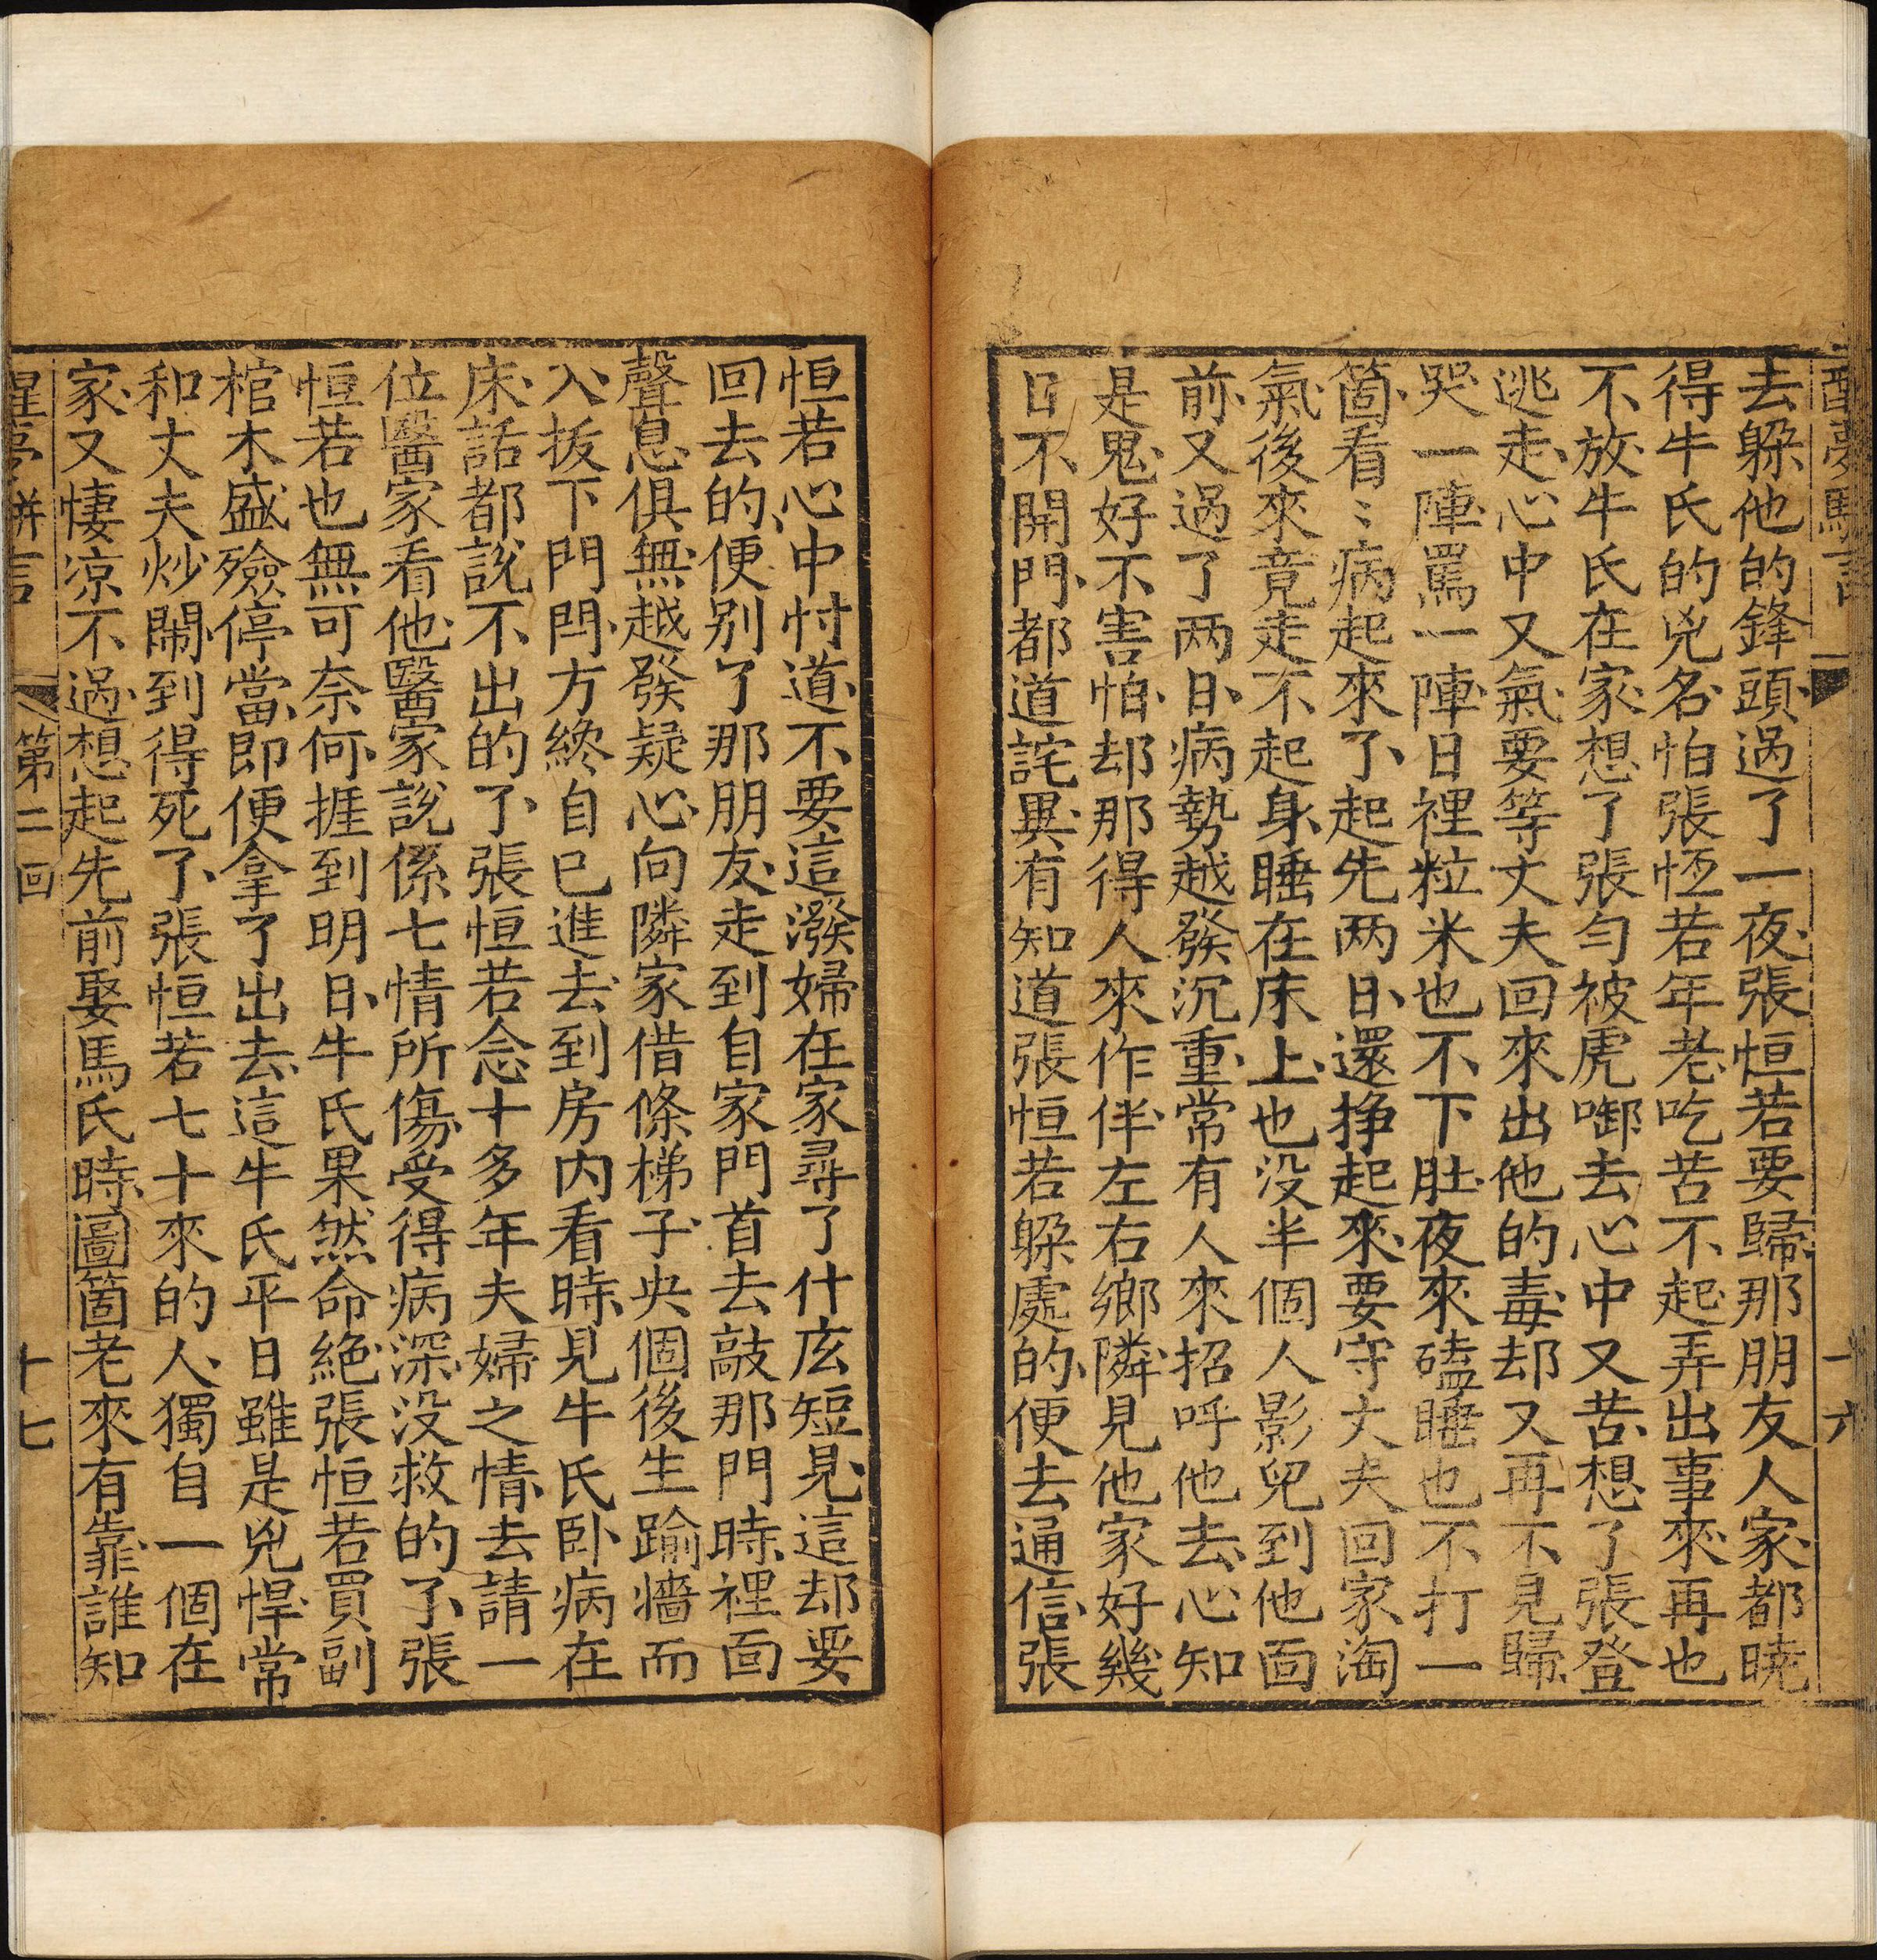 醒夢駢言
一六
去躱他的鋒頭過了一夜張恒若要歸那朋友人家都曉
得牛氏的兇名怕張恆若年老吃苦不起弄出事來再也
不放牛氏在家想了張勻被虎啣去心中又苦想了張登
逃走心中又氣要等丈夫回來出他的毒却又再不見歸
哭一陣罵一陣日裡粒米也不下肚夜來磕睡也不打一
箇看〻病起來了起先两日還掙起來要守丈夫回家淘
氣後來竟走不起身睡在床上也没半個人影兒到他面
前又過了两日病勢越發沉重常有人來招呼他去心知
是鬼好不害怕却那得人來作伴左右鄉隣見他家好幾
日不開門都道詫異有知道張恒若躱處的便去通信張
恒若心中忖道不要這潑婦在家尋了什庅短見這却要
回去的便别了那朋友走到自家門首去敲那門時裡面
聲息俱無越發疑心向隣家借條梯子央個後生踰墻而
入拔下門閂方終自已進去到房内看時見牛氏卧病在
床話都説不出的了張恒若念十多年夫婦之情去請一
位醫家看他醫家説係七情所傷受得病深没救的了張
恒若也無可奈何捱到明日牛氏果然命絶張恒若買副
棺木盛殮停當即便拿了出去這牛氏平日雖是兇悍常
和丈夫炒鬧到得死了張恒若七十來的人獨自一個在
家又悽凉不過想起先前娶馬氏時圖箇老來有靠誰知
醒夢駢言
第二回
十七